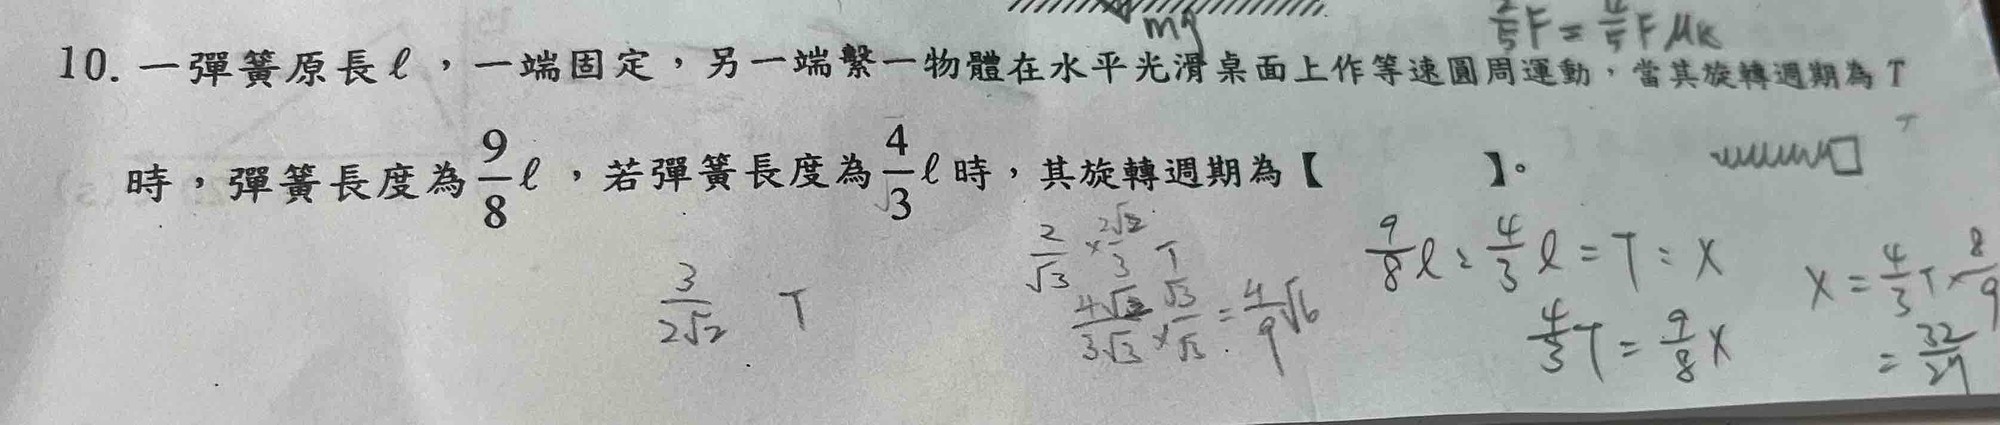 mg
2/5 F = 4/5 F μk
10. 一彈簧原長ℓ,一端固定,另一端繫一物體在水平光滑桌面上作等速圓周運動,當其旋轉週期為 T
時,彈簧長度為 9/8 ℓ,若彈簧長度為 4/3 ℓ 時,其旋轉週期為【 】。
T
3/2√2 T
2/√3 × 2√2/3 T
4√2/3√3 × √3/√3 = 4/9 √6
9/8 ℓ : 4/3 ℓ = T : X
4/3 T = 9/8 X
X = 4/3 T × 8/9
= 32/27